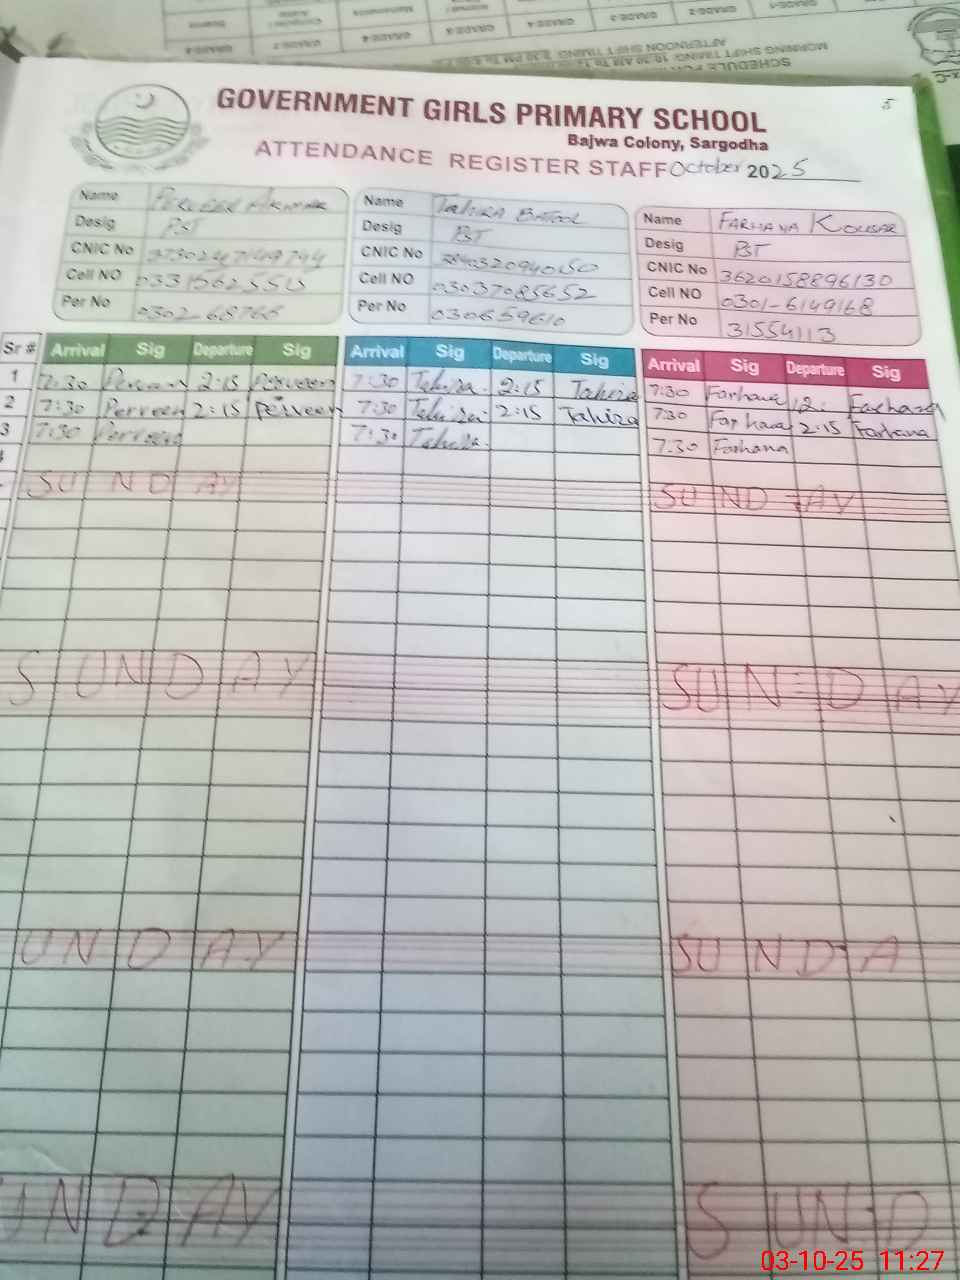 GOVERNMENT GIRLS PRIMARY SCHOOL
Bajwa Colony, Sargodha
ATTENDANCE REGISTER STAFF October 2025
5
Name
Desig PST
CNIC No
Cell NO
Per No 0302-68766
Name Tahira Batool
Desig PST
CNIC No
Cell NO 03037085652
Per No 030659610
Name FARHANA KOUSAR
Desig PST
CNIC No 3620158896130
Cell NO 0301-6149168
Per No 31554113
Sr # Arrival Sig Departure Sig Arrival Sig Departure Sig Arrival Sig Departure Sig
1 7:30 Perveen 2:15 Perveen 7:30 Tahira 2:15 Tahira 7:30 Farhana 12: Farhana
2 7:30 Perveen 2:15 Perveen 7:30 Tahira 2:15 Tahira 7:30 Farhana 2:15 Farhana
3 7:30 Perveen 7:30 Tahira 7:30 Farhana
SUNDAY SUNDAY
SUNDAY SUNDAY
UNDAY SUNDA
UNDAY SUND
03-10-25 11:27